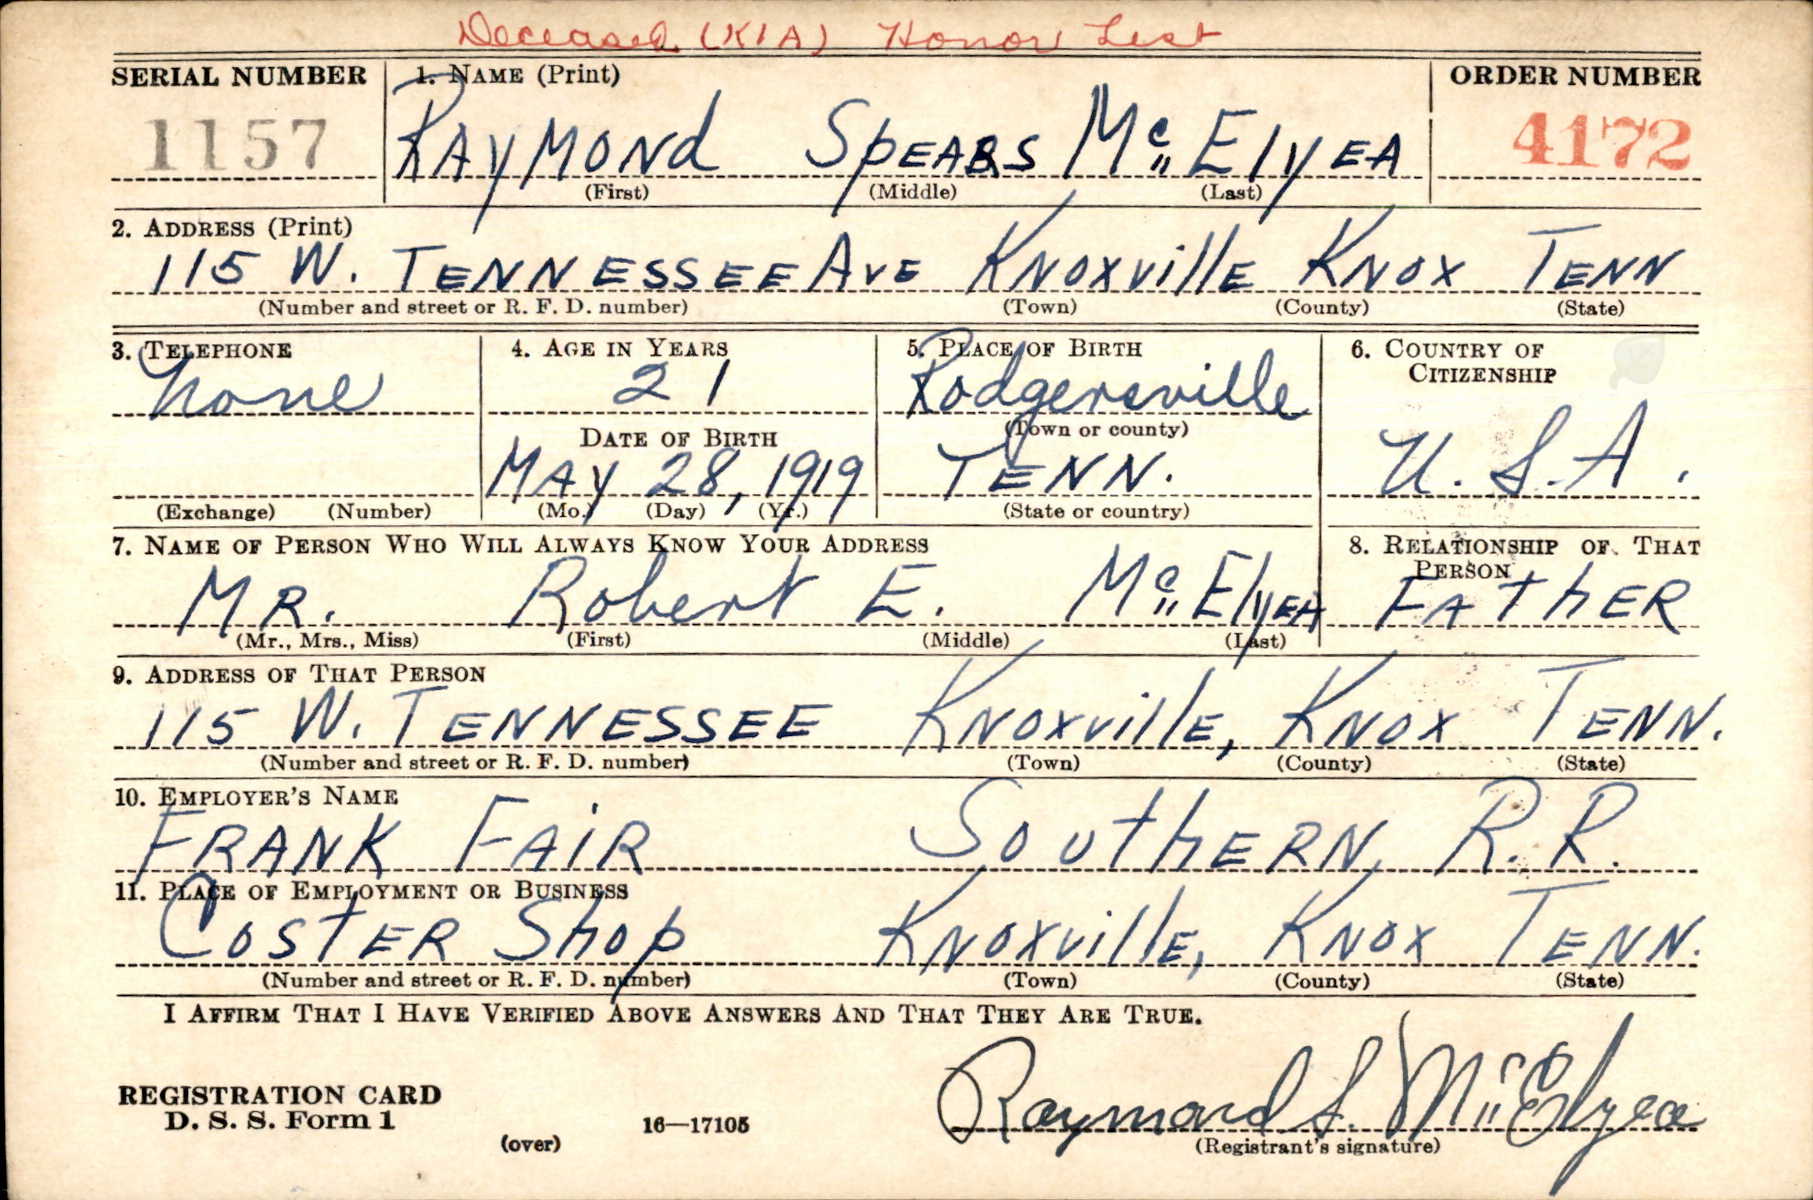 Deceased (KIA) Honor List
SERIAL NUMBER 1. NAME (Print) ORDER NUMBER
1157 RAYMOND SPEARS McELYEA 4172
(First) (Middle) (Last)
2. ADDRESS (Print)
115 W. TENNESSEE AVE KNOXVILLE KNOX TENN
(Number and street or R. F. D. number) (Town) (County) (State)
3. TELEPHONE 4. AGE IN YEARS 5. PLACE OF BIRTH 6. COUNTRY OF CITIZENSHIP
None 21 Rodgersville
(Town or county)
DATE OF BIRTH
MAY 28, 1919 TENN. U.S.A.
(Exchange) (Number) (Mo.) (Day) (Yr.) (State or country)
7. NAME OF PERSON WHO WILL ALWAYS KNOW YOUR ADDRESS 8. RELATIONSHIP OF THAT PERSON
MR. Robert E. McELYEA FATHER
(Mr., Mrs., Miss) (First) (Middle) (Last)
9. ADDRESS OF THAT PERSON
115 W. TENNESSEE KNOXVILLE, KNOX TENN.
(Number and street or R. F. D. number) (Town) (County) (State)
10. EMPLOYER'S NAME
FRANK FAIR SOUTHERN R.R.
11. PLACE OF EMPLOYMENT OR BUSINESS
COSTER SHOP KNOXVILLE, KNOX TENN.
(Number and street or R. F. D. number) (Town) (County) (State)
I AFFIRM THAT I HAVE VERIFIED ABOVE ANSWERS AND THAT THEY ARE TRUE.
REGISTRATION CARD
D. S. S. Form 1 Raymond S. McElyea
(over) 16—17105 (Registrant's signature)